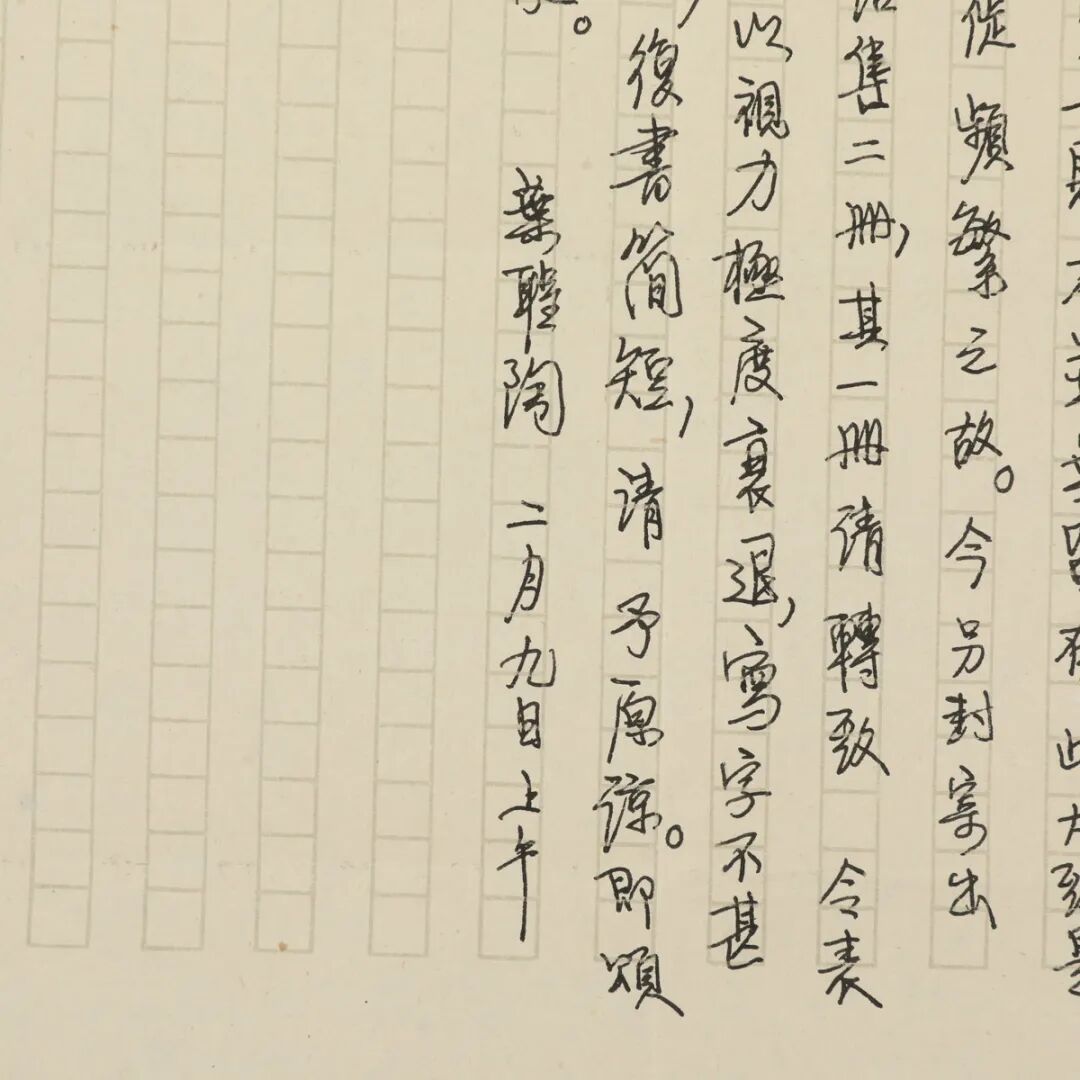 此大致是
徙頻繁之故。今另封寄出
售二册，其一册请轉致　令表
以視力極度衰退，寫字不甚
，復書简短，请予原谅。即頌
。
葉聖陶　二月九日上午